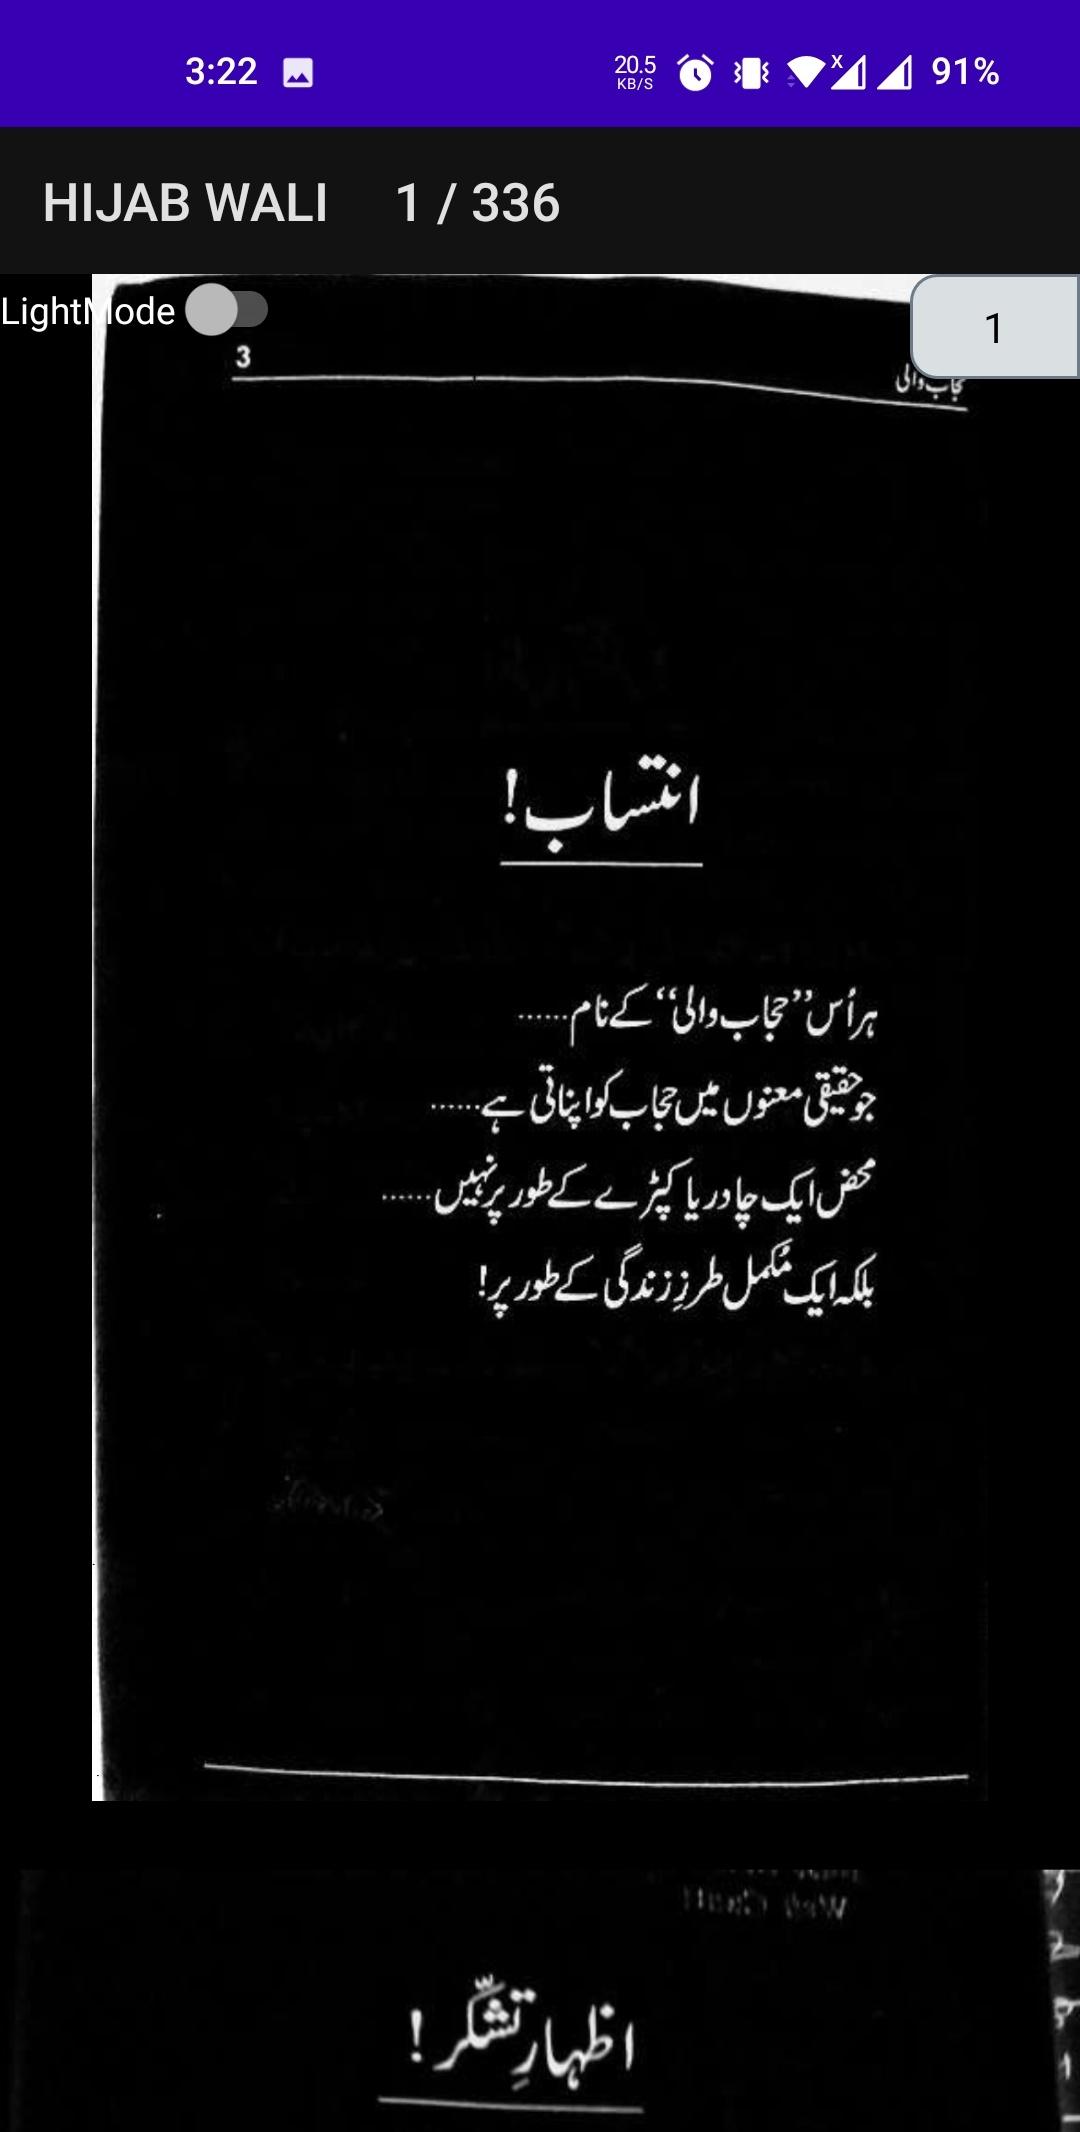 3:22 20.5 KB/S 91%
HIJAB WALI 1 / 336
LightMode 1
3
حجاب والی
انتساب!
ہر اُس ’’حجاب والی‘‘ کے نام......
جو حقیقی معنوں میں حجاب کو اپناتی ہے......
محض ایک چادر یا کپڑے کے طور پر نہیں......
بلکہ ایک مُکمل طرزِ زندگی کے طور پر!
اظہارِ تشکّر!